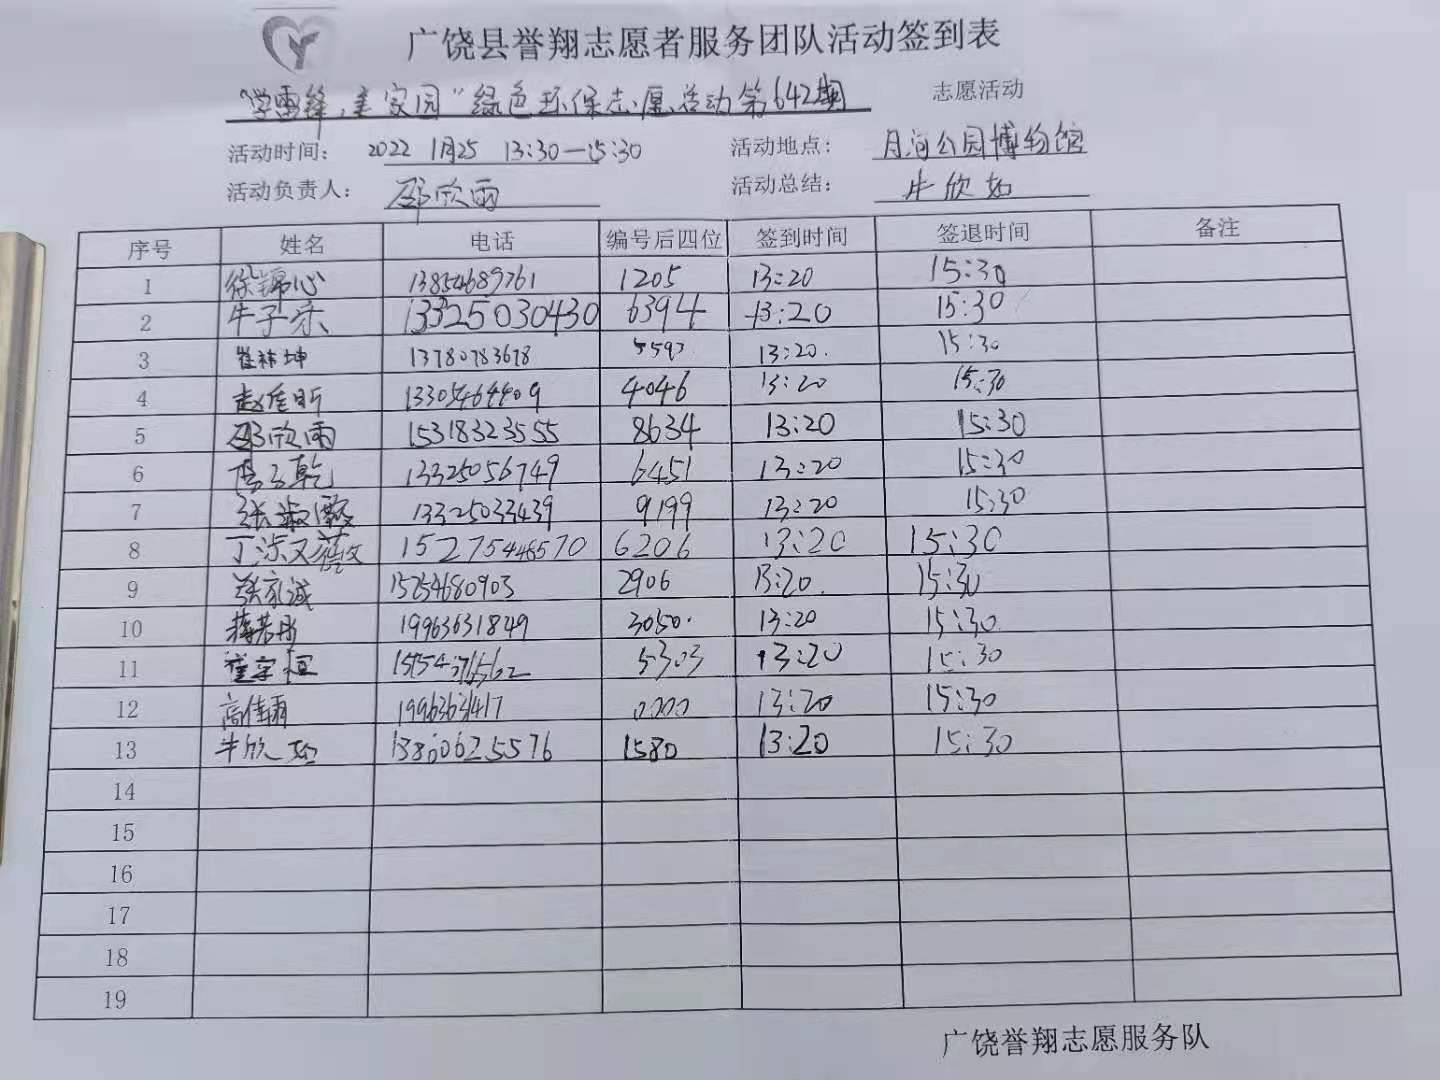 广饶县誉翔志愿者服务团队活动签到表
"学雷锋，美家园"绿色环保志愿活动第642期 志愿活动
活动时间： 2022 1月25 13:30—15:30 活动地点： 月河公园博物馆
活动负责人： 邵欣雨 活动总结： 牛欣如
序号 姓名 电话 编号后四位 签到时间 签退时间 备注
1 徐锦心 13854689761 1205 13:20 15:30
2 牛子乐 13325030430 6394 13:20 15:30
3 坤 13780783678 5593 13:20 15:30
4 赵佳昕 13305464409 4046 13:20 15:30
5 邵欣雨 15318323555 8634 13:20 15:30
6 乾 13325056749 6451 13:20 15:30
7 张淑 13325033439 9199 13:20 15:30
8 丁 15275448570 6206 13:20 15:30
9 张家诚 15254680903 2906 13:20 15:30
10 19963631849 3050 13:20 15:30
11 崔宇恒 5303 13:20 15:30
12 高佳雨 1996363417 0000 13:20 15:30
13 牛欣如 13806625576 1580 13:20 15:30
14
15
16
17
18
19
广饶誉翔志愿服务队